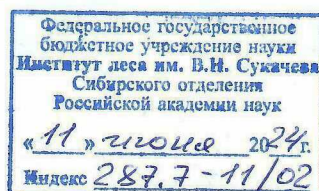 Федеральное государственное
бюджетное учреждение науки
Институт леса им. В.Н. Сукачева
Сибирского отделения
Российской академии наук
«11» июня 2024г.
Индекс 287.7-11/02